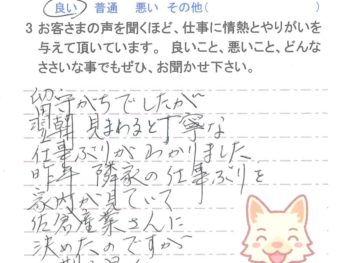 良い 普通 悪い その他(        )
3 お客さまの声を聞くほど、仕事に情熱とやりがいを
与えて頂いています。 良いこと、悪いこと、どんな
ささいな事でもぜひ、お聞かせ下さい。
留守がちでしたが
翌朝見まわると丁寧な
仕事ぶりがわかりました
昨年 隣家の仕事ぶりを
家内が見ていて
佐倉産業さんに
決めたのですが